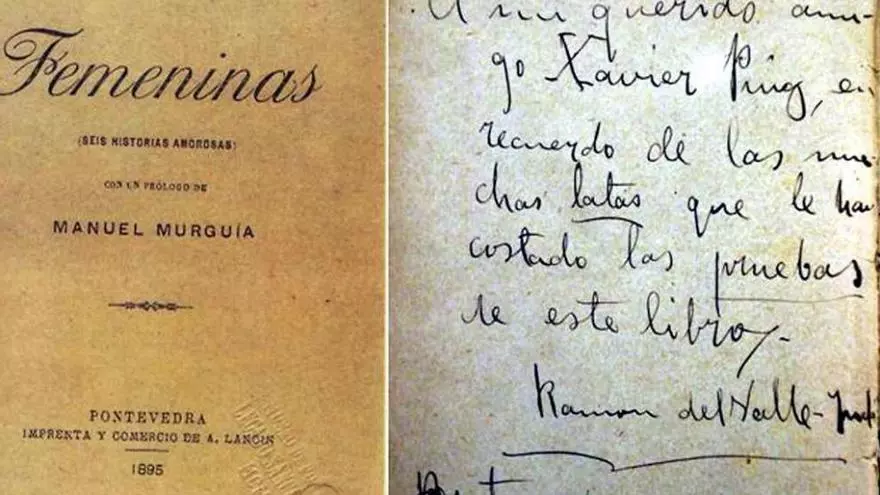 Femeninas
(SEIS HISTORIAS AMOROSAS)
CON UN PRÓLOGO DE
MANUEL MURGUÍA
PONTEVEDRA
IMPRENTA Y COMERCIO DE A. LANDÍN
1895
A mi querido ami-
go Xavier Puig, en
recuerdo de las mu-
chas latas que le han
costado las pruebas
de este libro,-
Ramon del Valle-